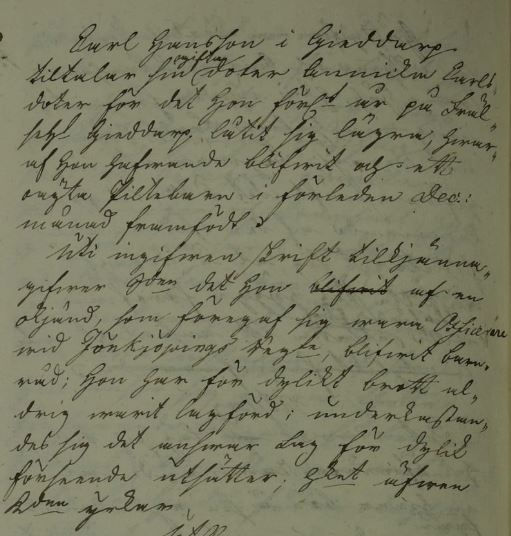 Carl Hansson i Gieddarp
tiltalar sin ogifta doter Annicka Carls-
doter för det hon först är på Fräl-
set Gieddarp låtit sig lägra, hvar-
af hon hafvande blifvit och ett
oägta Piltebarn i förleden Dec:
månad framfödt;
Uti ingifven skrift tilkjänna-
gifver Sden det hon blifvit af en
okjänd, som föregaf sig vara Officerare
vid Jönkiöpings Regte, blifvit barn-
råd; hon har för dylikt brott al-
drig varit lagförd; underkastan-
des sig det answar Lag för dylik
förseende utsätter; hket äfven
Kden yrkar,